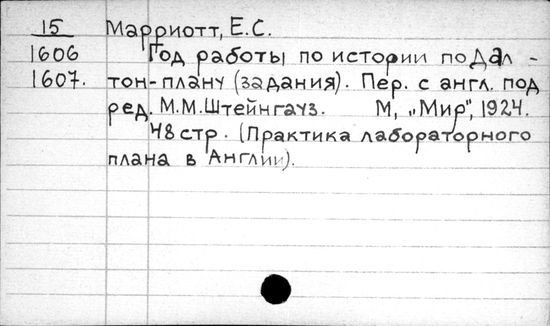 15 Марриотт, Е.С.
1606 Год работы по истории по Дал -
1607. тон-плану (задания). Пер. с англ. под
ред. М.М.Штейнгауз. М, „Мир", 1924.
48 стр. (Практика лабораторного
плана в Англии).